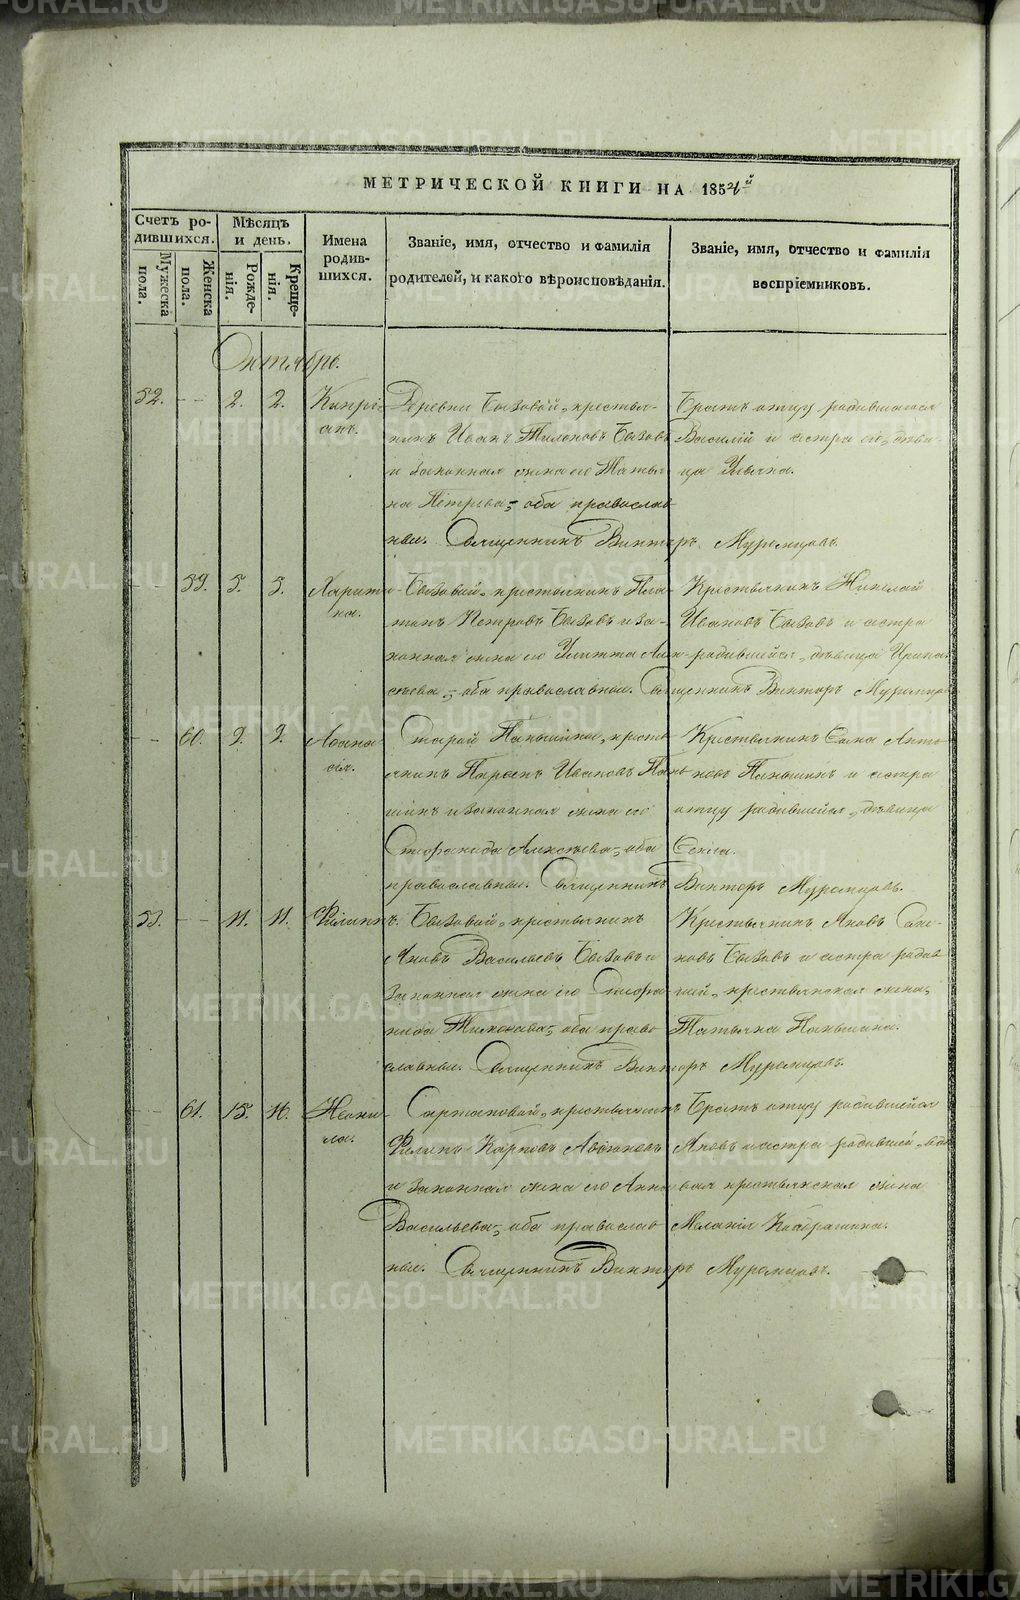 МЕТРИЧЕСКОЙ КНИГИ НА 1854й
Счетъ родившихся.
Мѣсяцъ и день.
Имена родившихся.
Званіе, имя, отчество и фамилія родителей, и какого вѣроисповѣданія.
Званіе, имя, отчество и фамилія воспріемниковъ.
Мужеска пола.
Женска пола.
Рожденія.
Крещенія.
Октябрь.
52. -- 2. 2. Кипріанъ.
Деревни Бызовой, крестьянинъ Иванъ Бызовъ
и законная жена его Татьяна Петрова, оба православные.
Братъ отцу родившагося
Василій и сестра его, дѣвица
Священникъ Викторъ Муромцовъ.
-- 59. 5. 5. Харитина.
Бызовой, крестьянинъ Платонъ Петровъ Бызовъ и законная жена его Улитта
оба православные.
Крестьянинъ Николай
Ивановъ Бызовъ и сестра
родившейся, дѣвица Ирина.
Священникъ Викторъ Муромцовъ
-- 60. 9. 9.
Старой Паньшиной, крестьянинъ Ивановъ Паньшинъ и законная жена его
Стефанида Алексѣева, оба православные.
Крестьянинъ
Паньшинъ и сестра
отцу родившейся, дѣвица
Священникъ Викторъ Муромцовъ.
53. -- 11. 11. Филиппъ.
Бызовой, крестьянинъ
Яковъ Васильевъ Бызовъ и
законная жена его Стефанида оба православные.
Крестьянинъ Яковъ
Бызовъ и сестра
крестьянская жена,
Татьяна Паньшина.
Священникъ Викторъ Муромцовъ.
-- 61. 15. 16. Неонила.
крестьянинъ
Филипъ Карповъ
и законная жена его Анна
Васильева, оба православные.
Братъ отцу родившейся
Яковъ и сестра
крестьянская жена
Меланія
Священникъ Викторъ Муромцовъ.
METRIKI.GASO-URAL.RU